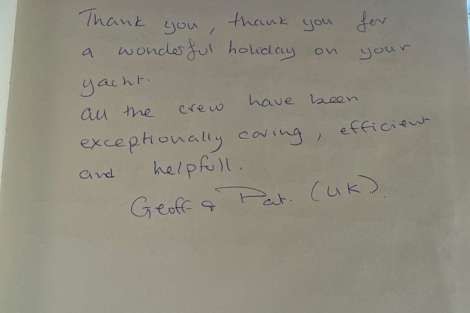 Thank you, thank you for
a wonderful holiday on your
yacht.
All the crew have been
exceptionally caring, efficient
and helpfull.
Geoff & Pat. (UK).